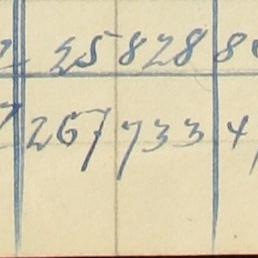 2 25 828 8
7 267 733 4